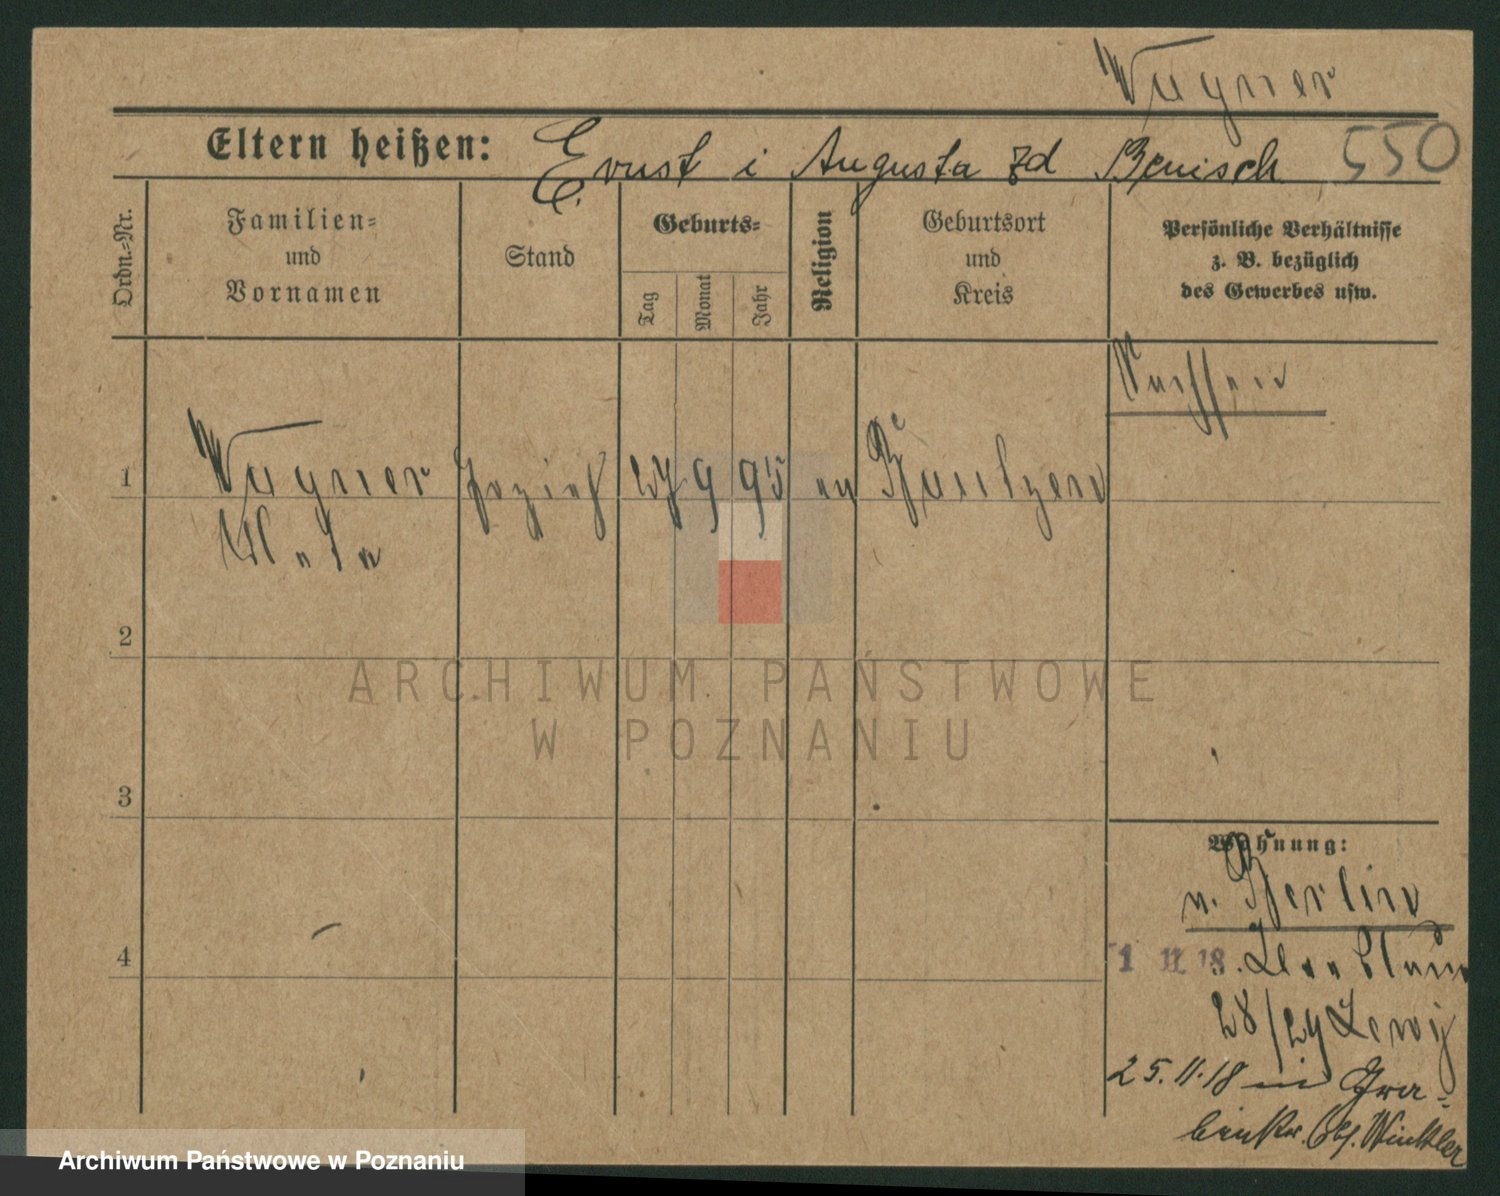 Wagner
Eltern heißen: Ernst i Augusta zd Benisch 550
Ordn.=Nr.
Familien=
und
Vornamen
Stand
Geburts=
Tag
Monat
Jahr
Religion
Geburtsort
und
Kreis
Persönliche Verhältnisse
z. B. bezüglich
des Gewerbes usw.
1
Wagner
27 9 95 ev
2
3
4
Wohnung:
n. Berlin
1 11 18.
28/29
25.11.18 Gra=
Winkler
ARCHIWUM PAŃSTWOWE
W POZNANIU
Archiwum Państwowe w Poznaniu